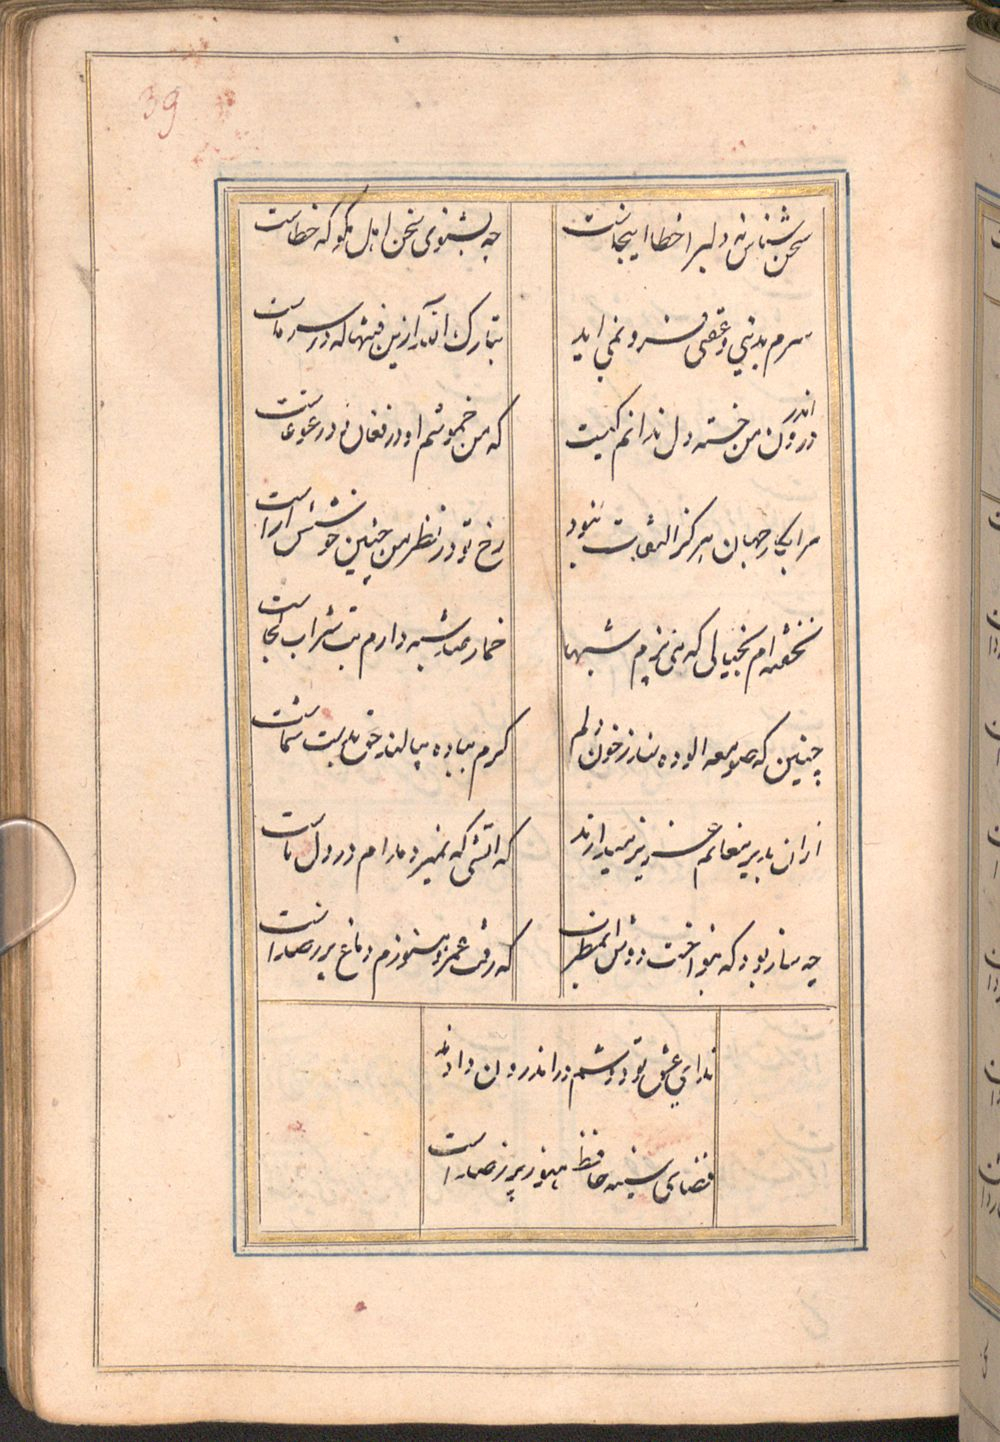 39
سخن شناس نه دلبرا خطا اینجاست
چه بشنوی سخن اهل مگو که خطاست
سرم بدنیی و عقبی فرو نمی اید
تبارک الله ازین فتنها که در سر ماست
در اندرون من خسته دل ندانم کیست
که من خموشم او در فغان و در غوغاست
مرا بکار جهان هرکز التفات نبود
رخ تو در نظر من چنین خوشش اراست
نخفته ام بخیالی که می پزم شبها
خمار صد شبه دارم شراب کجاست
چنین که صومعه الوده شد ز خون دلم
کرم بباده حق بدست شماست
ازان بدیر مغانم عزیز میدارند
که اتشی که نمیرد مدام در دل ماست
چه ساز بود که بنواخت دوش ان مطرب
که رفت عمر و هنوزم دماغ پر ز صداست
ندای عشق تو دوشم در اندرون دادند
فضای سینه حافظ هنوز پر ز صداست